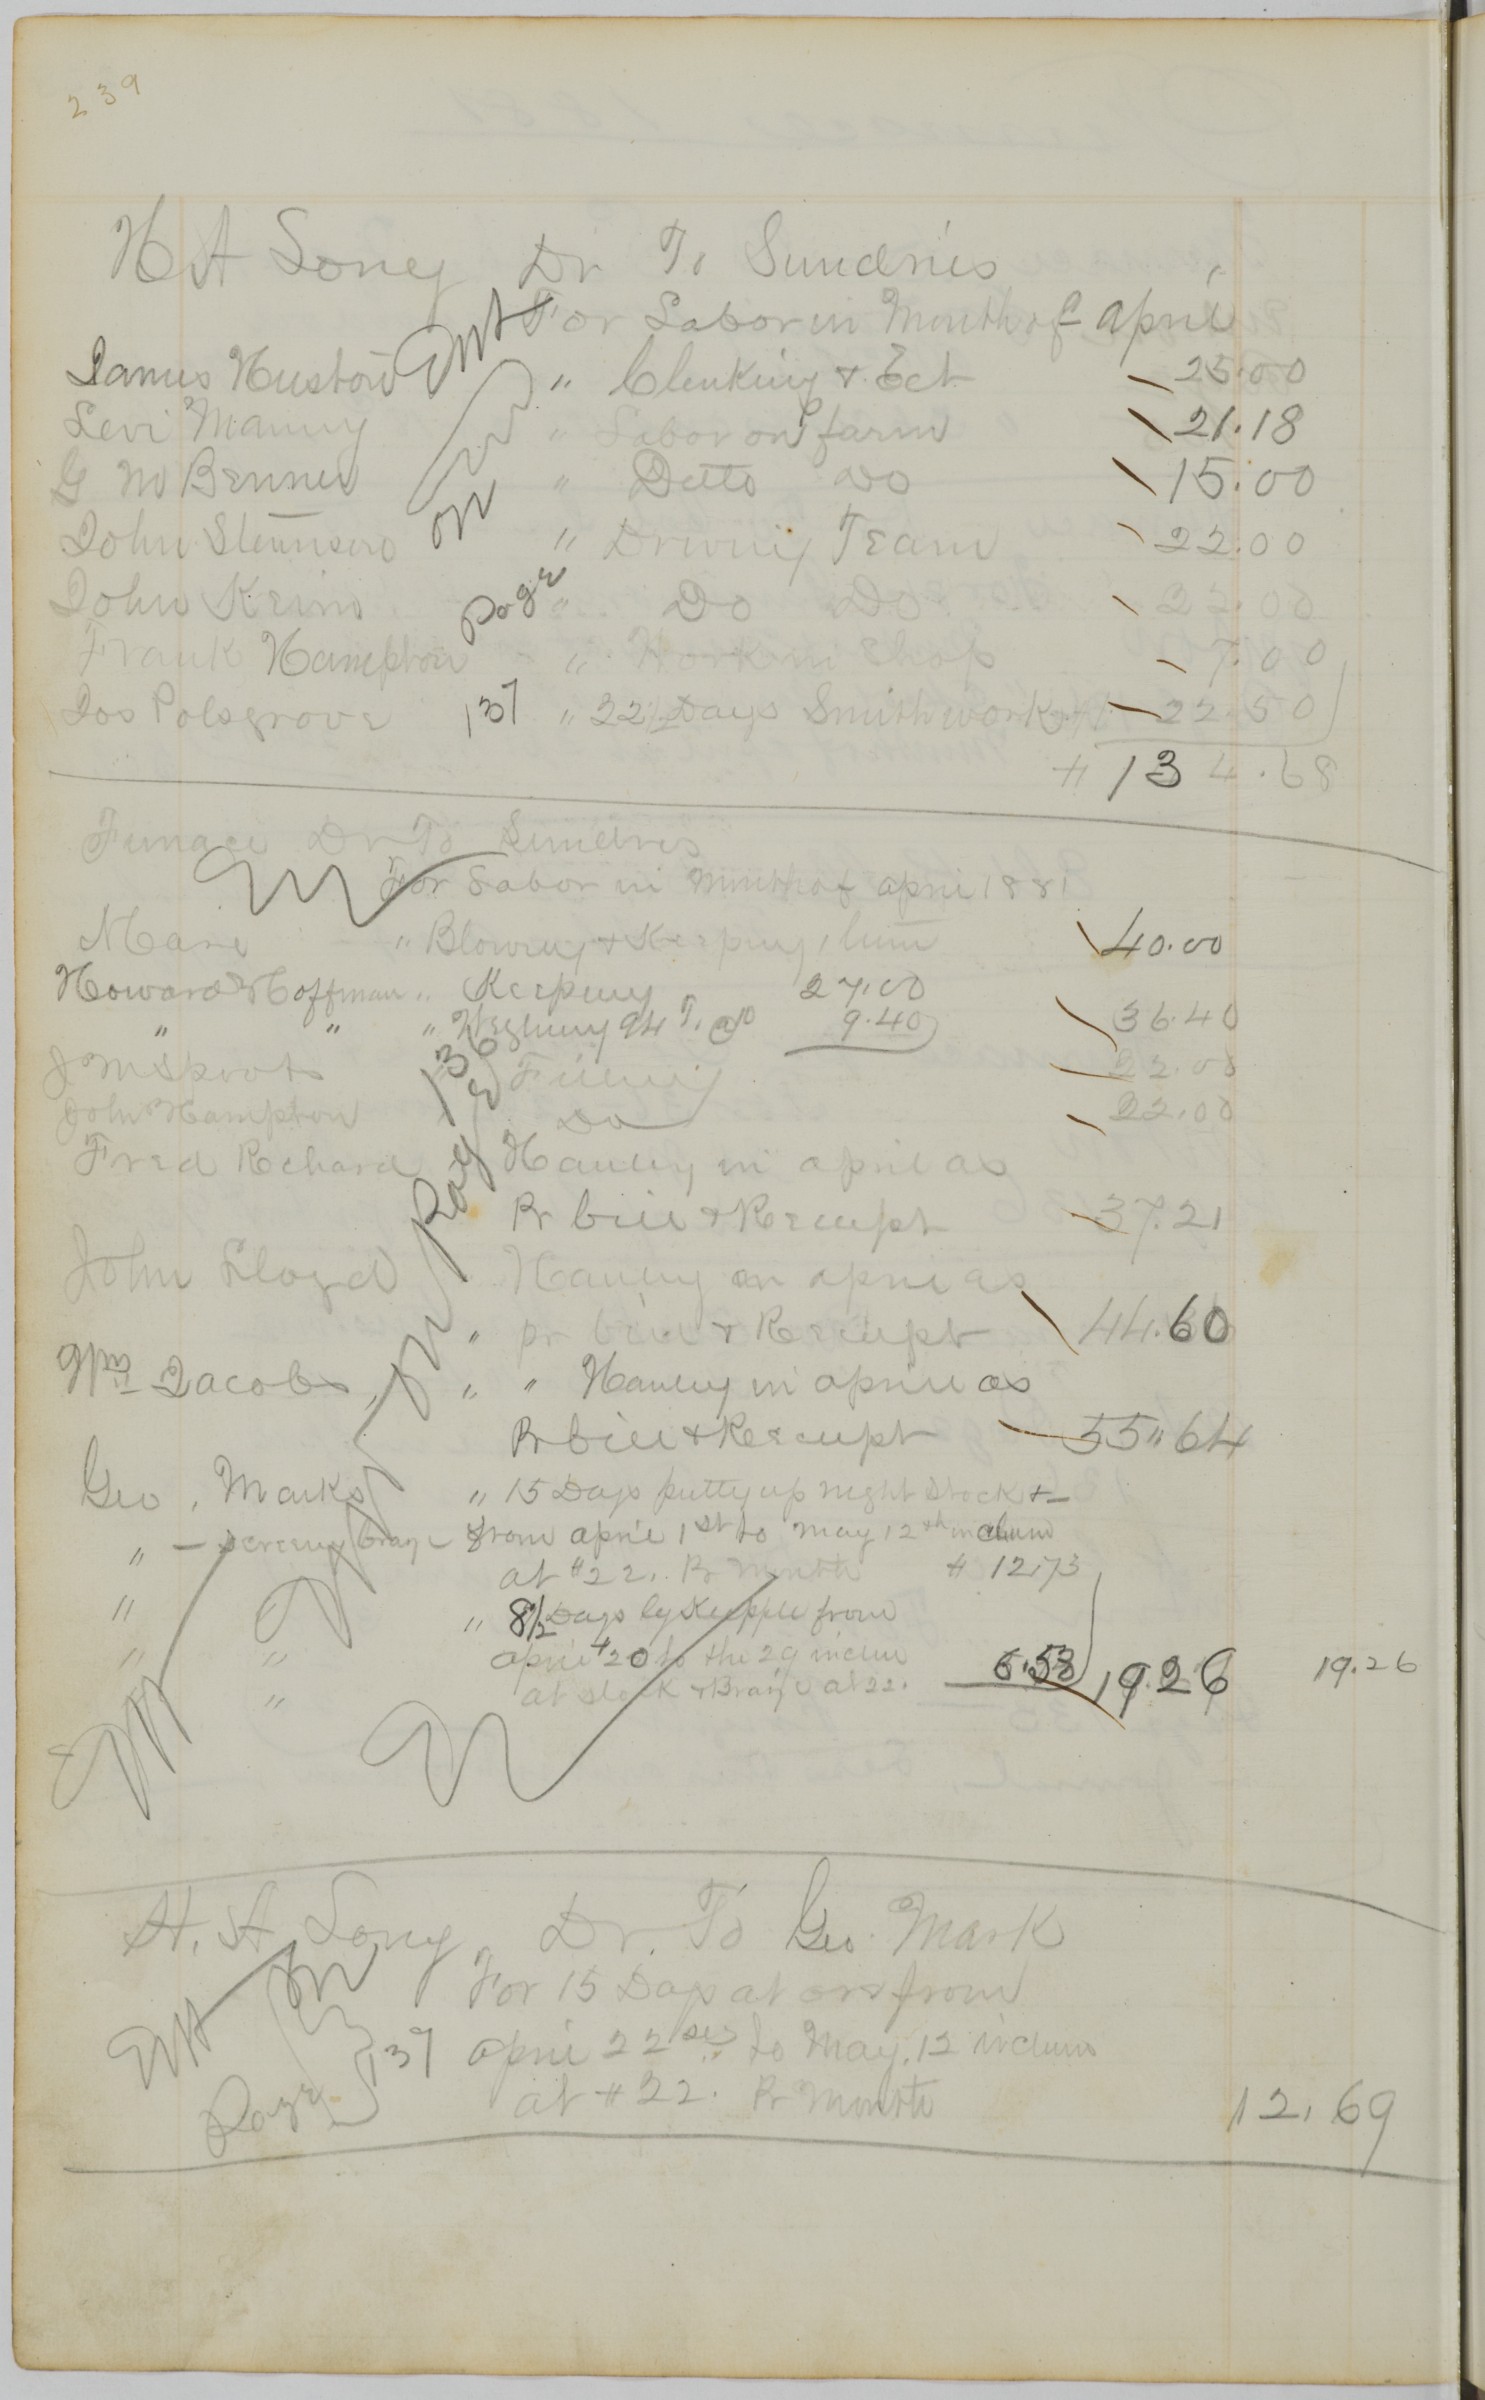 239
H A Long Dr To Sundries
For Labor in Month of April
James Huston " Clerking & Ect 25.00
Levi Manny " Labor on farm 21.18
G W Benner " Ditto Do 15.00
John " Driving Team 22.00
John Keim " Do Do 22.00
Frank Hampton " Work in Shop 7.00
Jos Polsgrove " 22½ Days Smith work 22.50
# 134.68
Ent on Page 137
Furnace Dr To Sundries
For Labor in Month of April 1881
" Blowing & Keeping 40.00
Howard Hoffman " Keeping 27.00
" " " Weighing 94 T. @10 9.40 36.40
J M Sprots Filling 22.00
John Hampton Do 22.00
Fred Richard Hauling in april as
Pr bill & Receipt 37.21
John Lloyd Hauling in april as
" pr bill & Receipt 44.60
Wm Jacobs " " Hauling in april as
Pr bill & Receipt 55"64
Geo. Marks " 15 Days putting up night stock &
" from april 1st to may 12th
at #22.. Pr Month # 12.73
" " 8½ Days by from
" " april 20 to the 29
" at stock & at 22. 6.53 19.26 19.26
Ent on Page 136
H. A Long Dr. To Geo. Mark
For 15 Days at ore from
april 22 to May. 12
at #22. Pr Month 12.69
Ent on Page 137